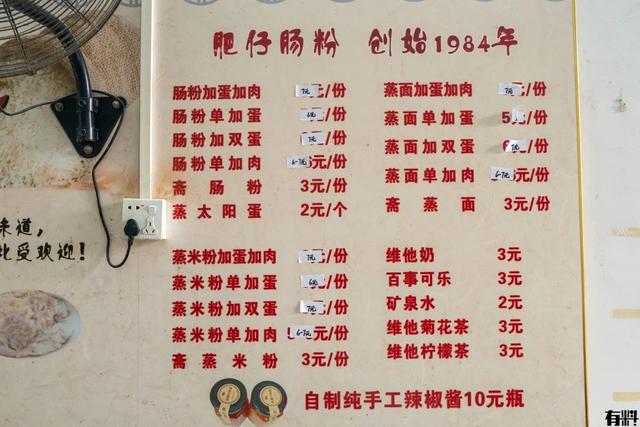 肥仔肠粉 创始1984年
肠粉加蛋加肉 7元/份
肠粉单加蛋 6元/份
肠粉加双蛋 7元/份
肠粉单加肉 6-7元/份
斋肠粉 3元/份
蒸太阳蛋 2元/个
蒸面加蛋加肉 7元/份
蒸面单加蛋 5元/份
蒸面加双蛋 7元/份
蒸面单加肉 6-7元/份
斋蒸面 3元/份
蒸米粉加蛋加肉 7元/份
蒸米粉单加蛋 6元/份
蒸米粉加双蛋 7元/份
蒸米粉单加肉 6-7元/份
斋蒸米粉 3元/份
维他奶 3元
百事可乐 3元
矿泉水 2元
维他菊花茶 3元
维他柠檬茶 3元
自制纯手工辣椒酱10元瓶
味道，
受欢迎！
有料